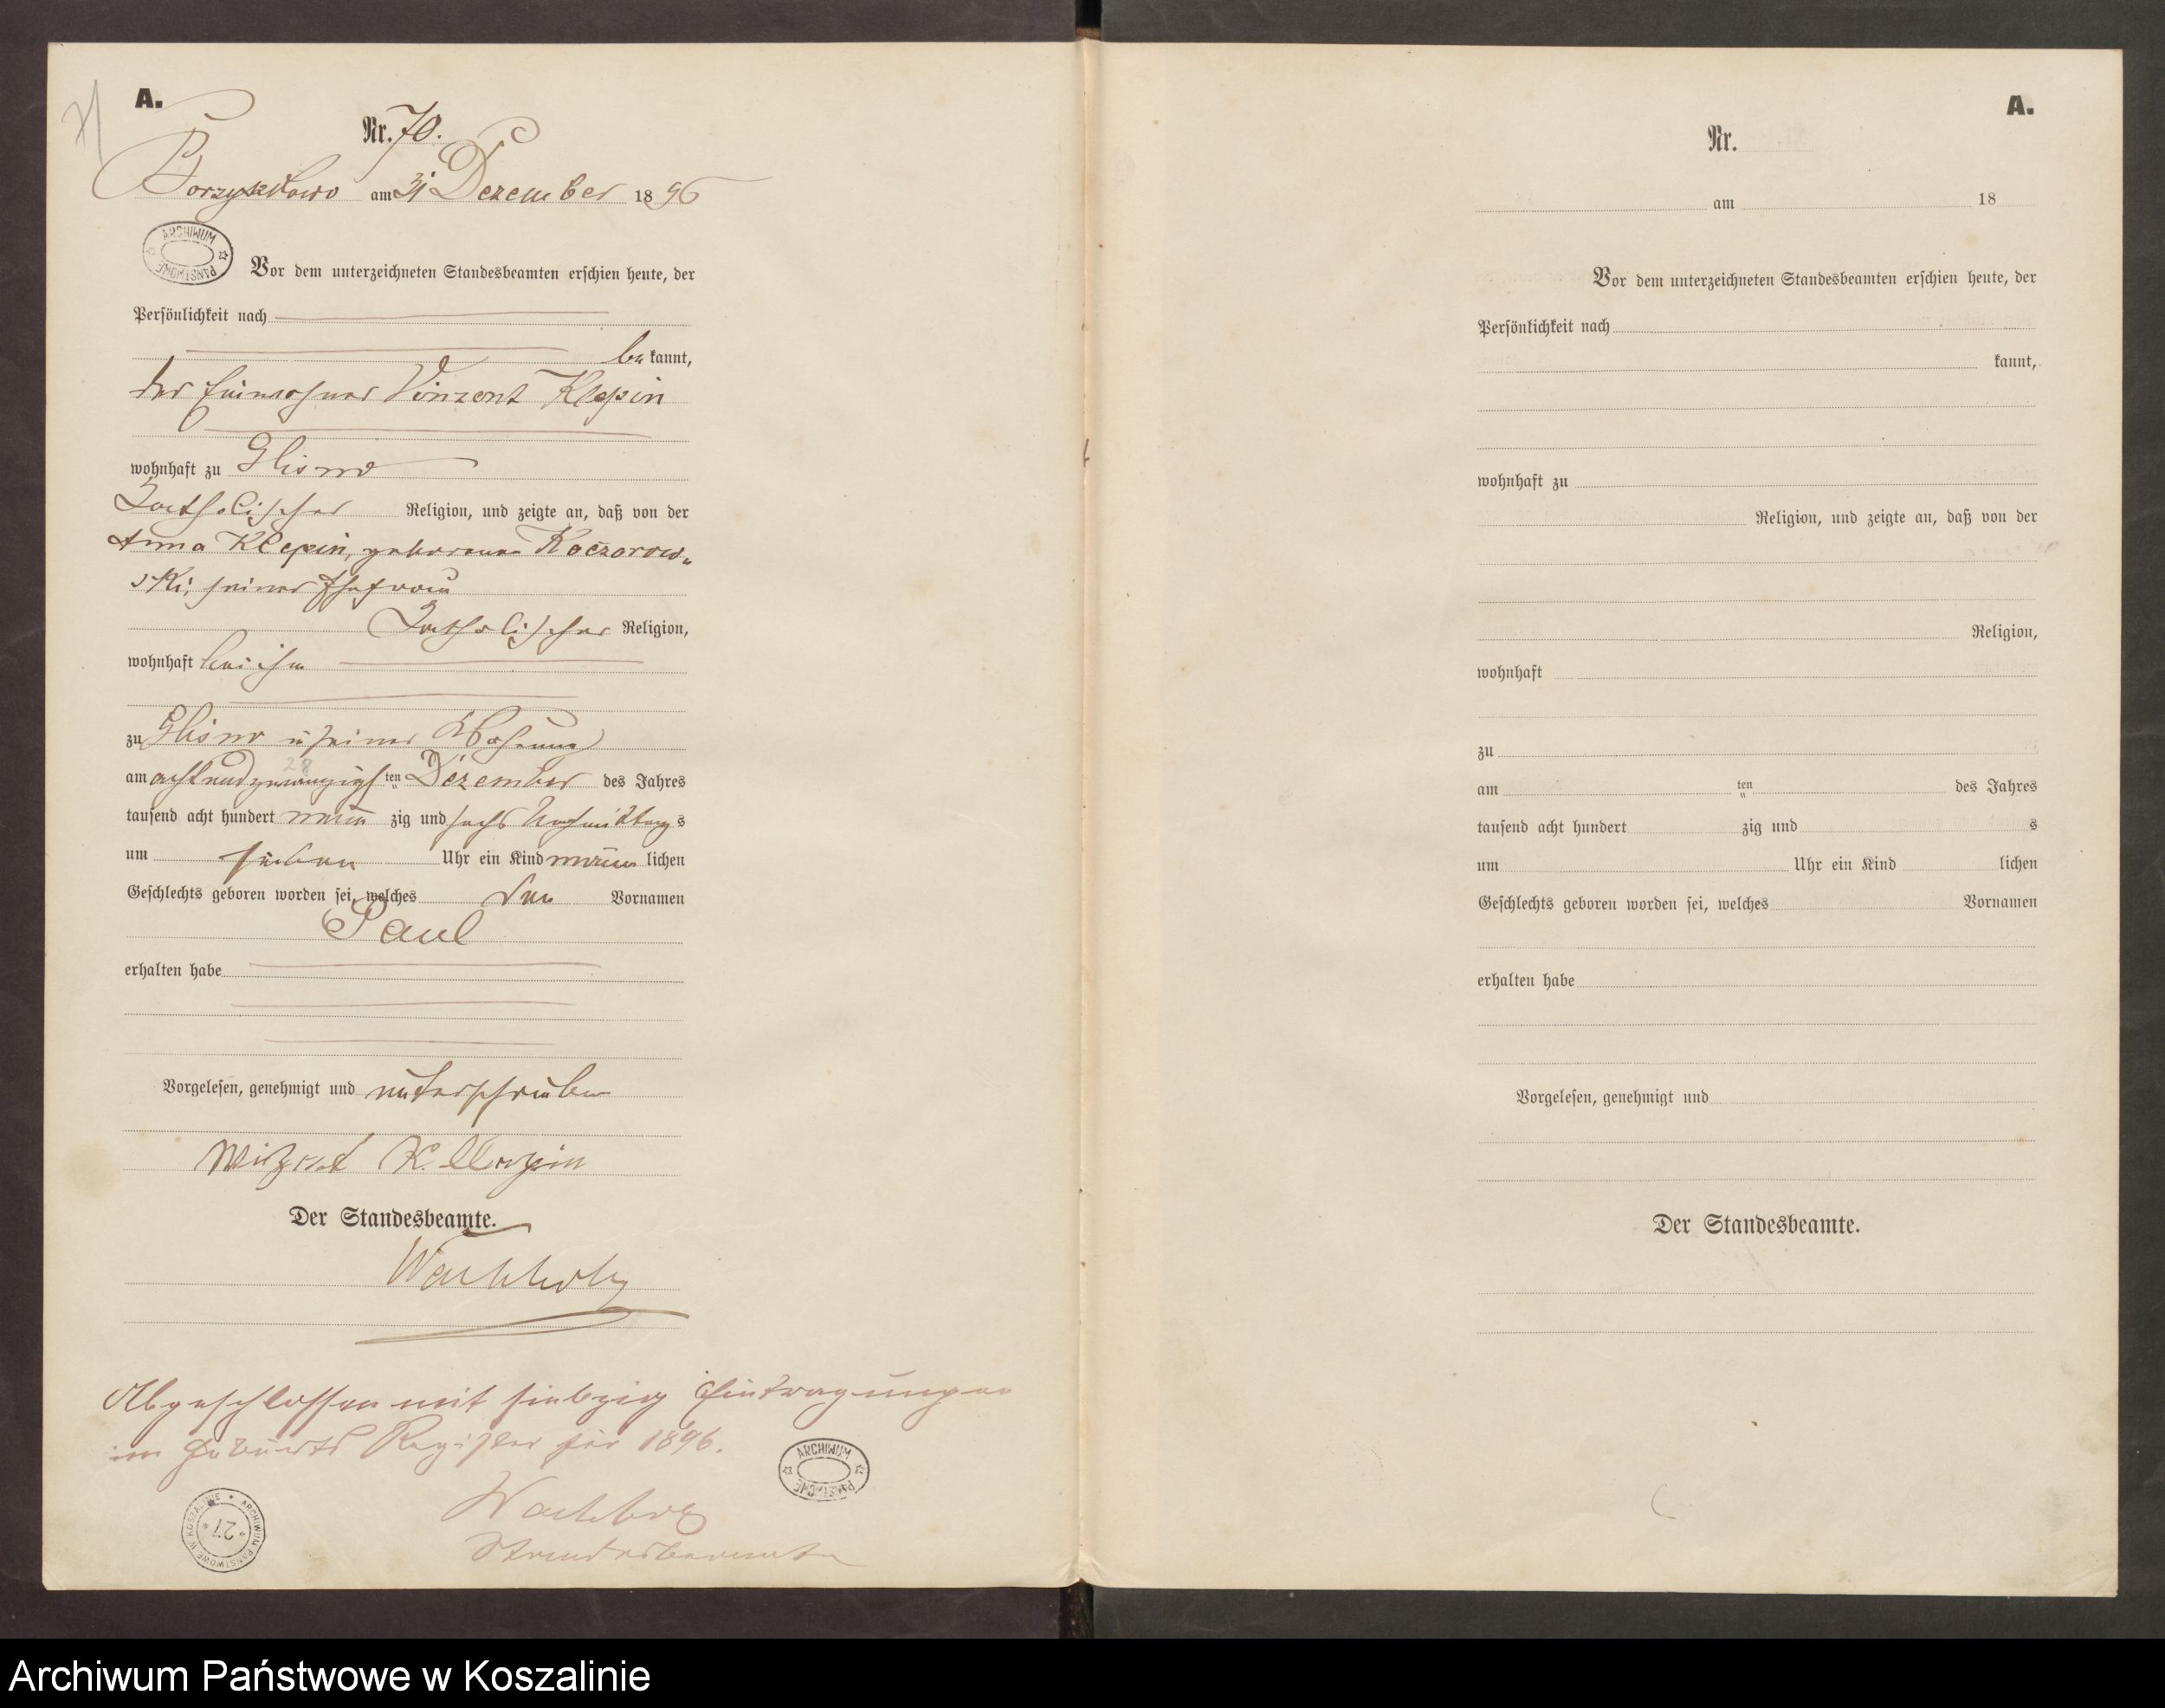 A.
Nr. 70.
Borzyszkowo am 31 Dezember 1896
ARCHIWUM PAŃSTWOWE
Vor dem unterzeichneten Standesbeamten erschien heute, der
Persönlichkeit nach
be kannt,
der Einwohner Vinzent Klepin
wohnhaft zu Glisno
katholischer Religion, und zeigte an, daß von der
Anna Klepin, geborenen Kaczorow-
ski, seiner Ehefrau
katholischer Religion,
wohnhaft bei ihm
zu Glisno in seiner Wohnung
28
am achtundzwanzigsten ten Dezember des Jahres
tausend acht hundert neun zig und sechs Nachmittags
um sieben Uhr ein Kind männlichen
Geschlechts geboren worden sei, welches den Vornamen
Paul
erhalten habe
Vorgelesen, genehmigt und unterschrieben
Der Standesbeamte.
Wachholz
Abgeschlossen mit siebzig Eintragungen
im Geburts Register für 1896.
ARCHIWUM PAŃSTWOWE
Wachholz
Standesbeamte
ARCHIWUM PAŃSTWOWE W KOSZALINIE
27
A.
Nr.
am 18
Vor dem unterzeichneten Standesbeamten erschien heute, der
Persönlichkeit nach
kannt,
wohnhaft zu
Religion, und zeigte an, daß von der
Religion,
wohnhaft
zu
am ten des Jahres
tausend acht hundert zig und s
um Uhr ein Kind lichen
Geschlechts geboren worden sei, welches Vornamen
erhalten habe
Vorgelesen, genehmigt und
Der Standesbeamte.
Archiwum Państwowe w Koszalinie